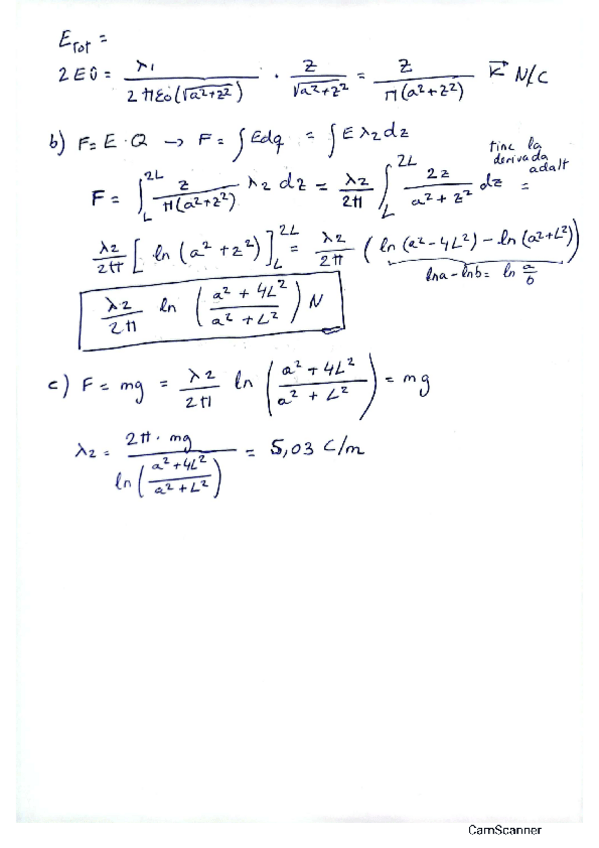 E_Tot =
2E0 = λ1 / (2πε0(√(a²+z²))) · z / √(a²+z²) = z / (π(a²+z²)) k⃗ N/C
b) F = E·Q → F = ∫Edq = ∫Eλ2dz
tinc la derivada adalt
F = ∫_L^2L z / (π(a²+z²)) λ2 dz = λ2/2π ∫_L^2L 2z / (a²+z²) dz =
λ2/2π [ln(a²+z²)]_L^2L = λ2/2π (ln(a²-4L²) - ln(a²+L²))
lna - lnb = ln a/b
λ2/2π ln((a²+4L²) / (a²+L²)) N
c) F = mg = λ2/2π ln((a²+4L²) / (a²+L²)) = mg
λ2 = 2π·mg / ln((a²+4L²) / (a²+L²)) = 5,03 C/m
CamScanner